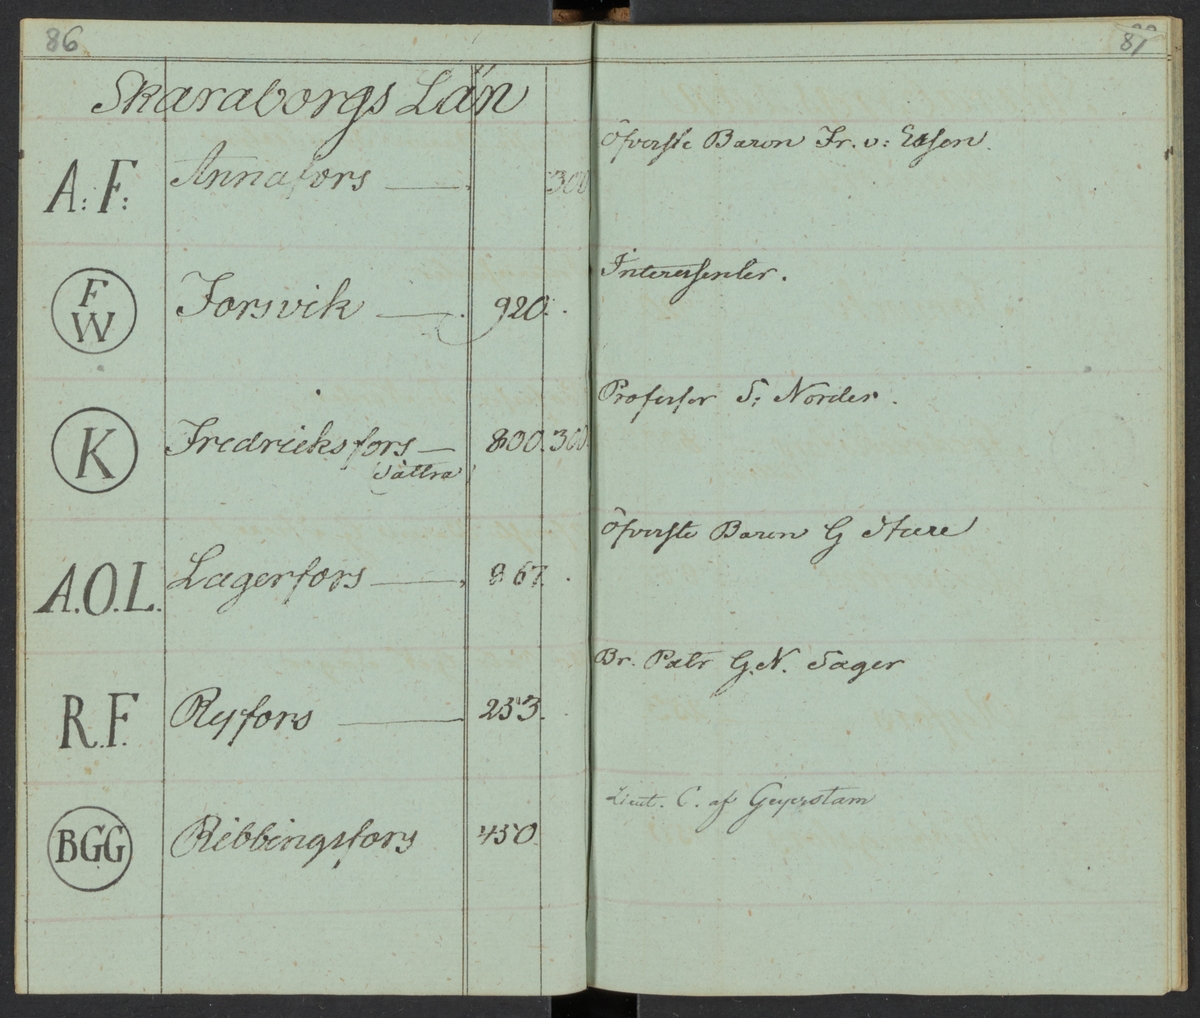 86
87
Skaraborgs Län
A: F: Annafors — 300 Öfverste Baron Fr. v: Essen.
F W Forsvik — 920. Interessenter.
K Fredricksfors — 800. 300. Professor S: Norder.
(Sättra)
A.O.L. Lagerfors — 867. Öfverste Baron G Sture
R.F. Ryfors — 253. Br. Patr G.N. Sager
BGG Ribbingsfors 450. Lieut. C. af Geijerstam